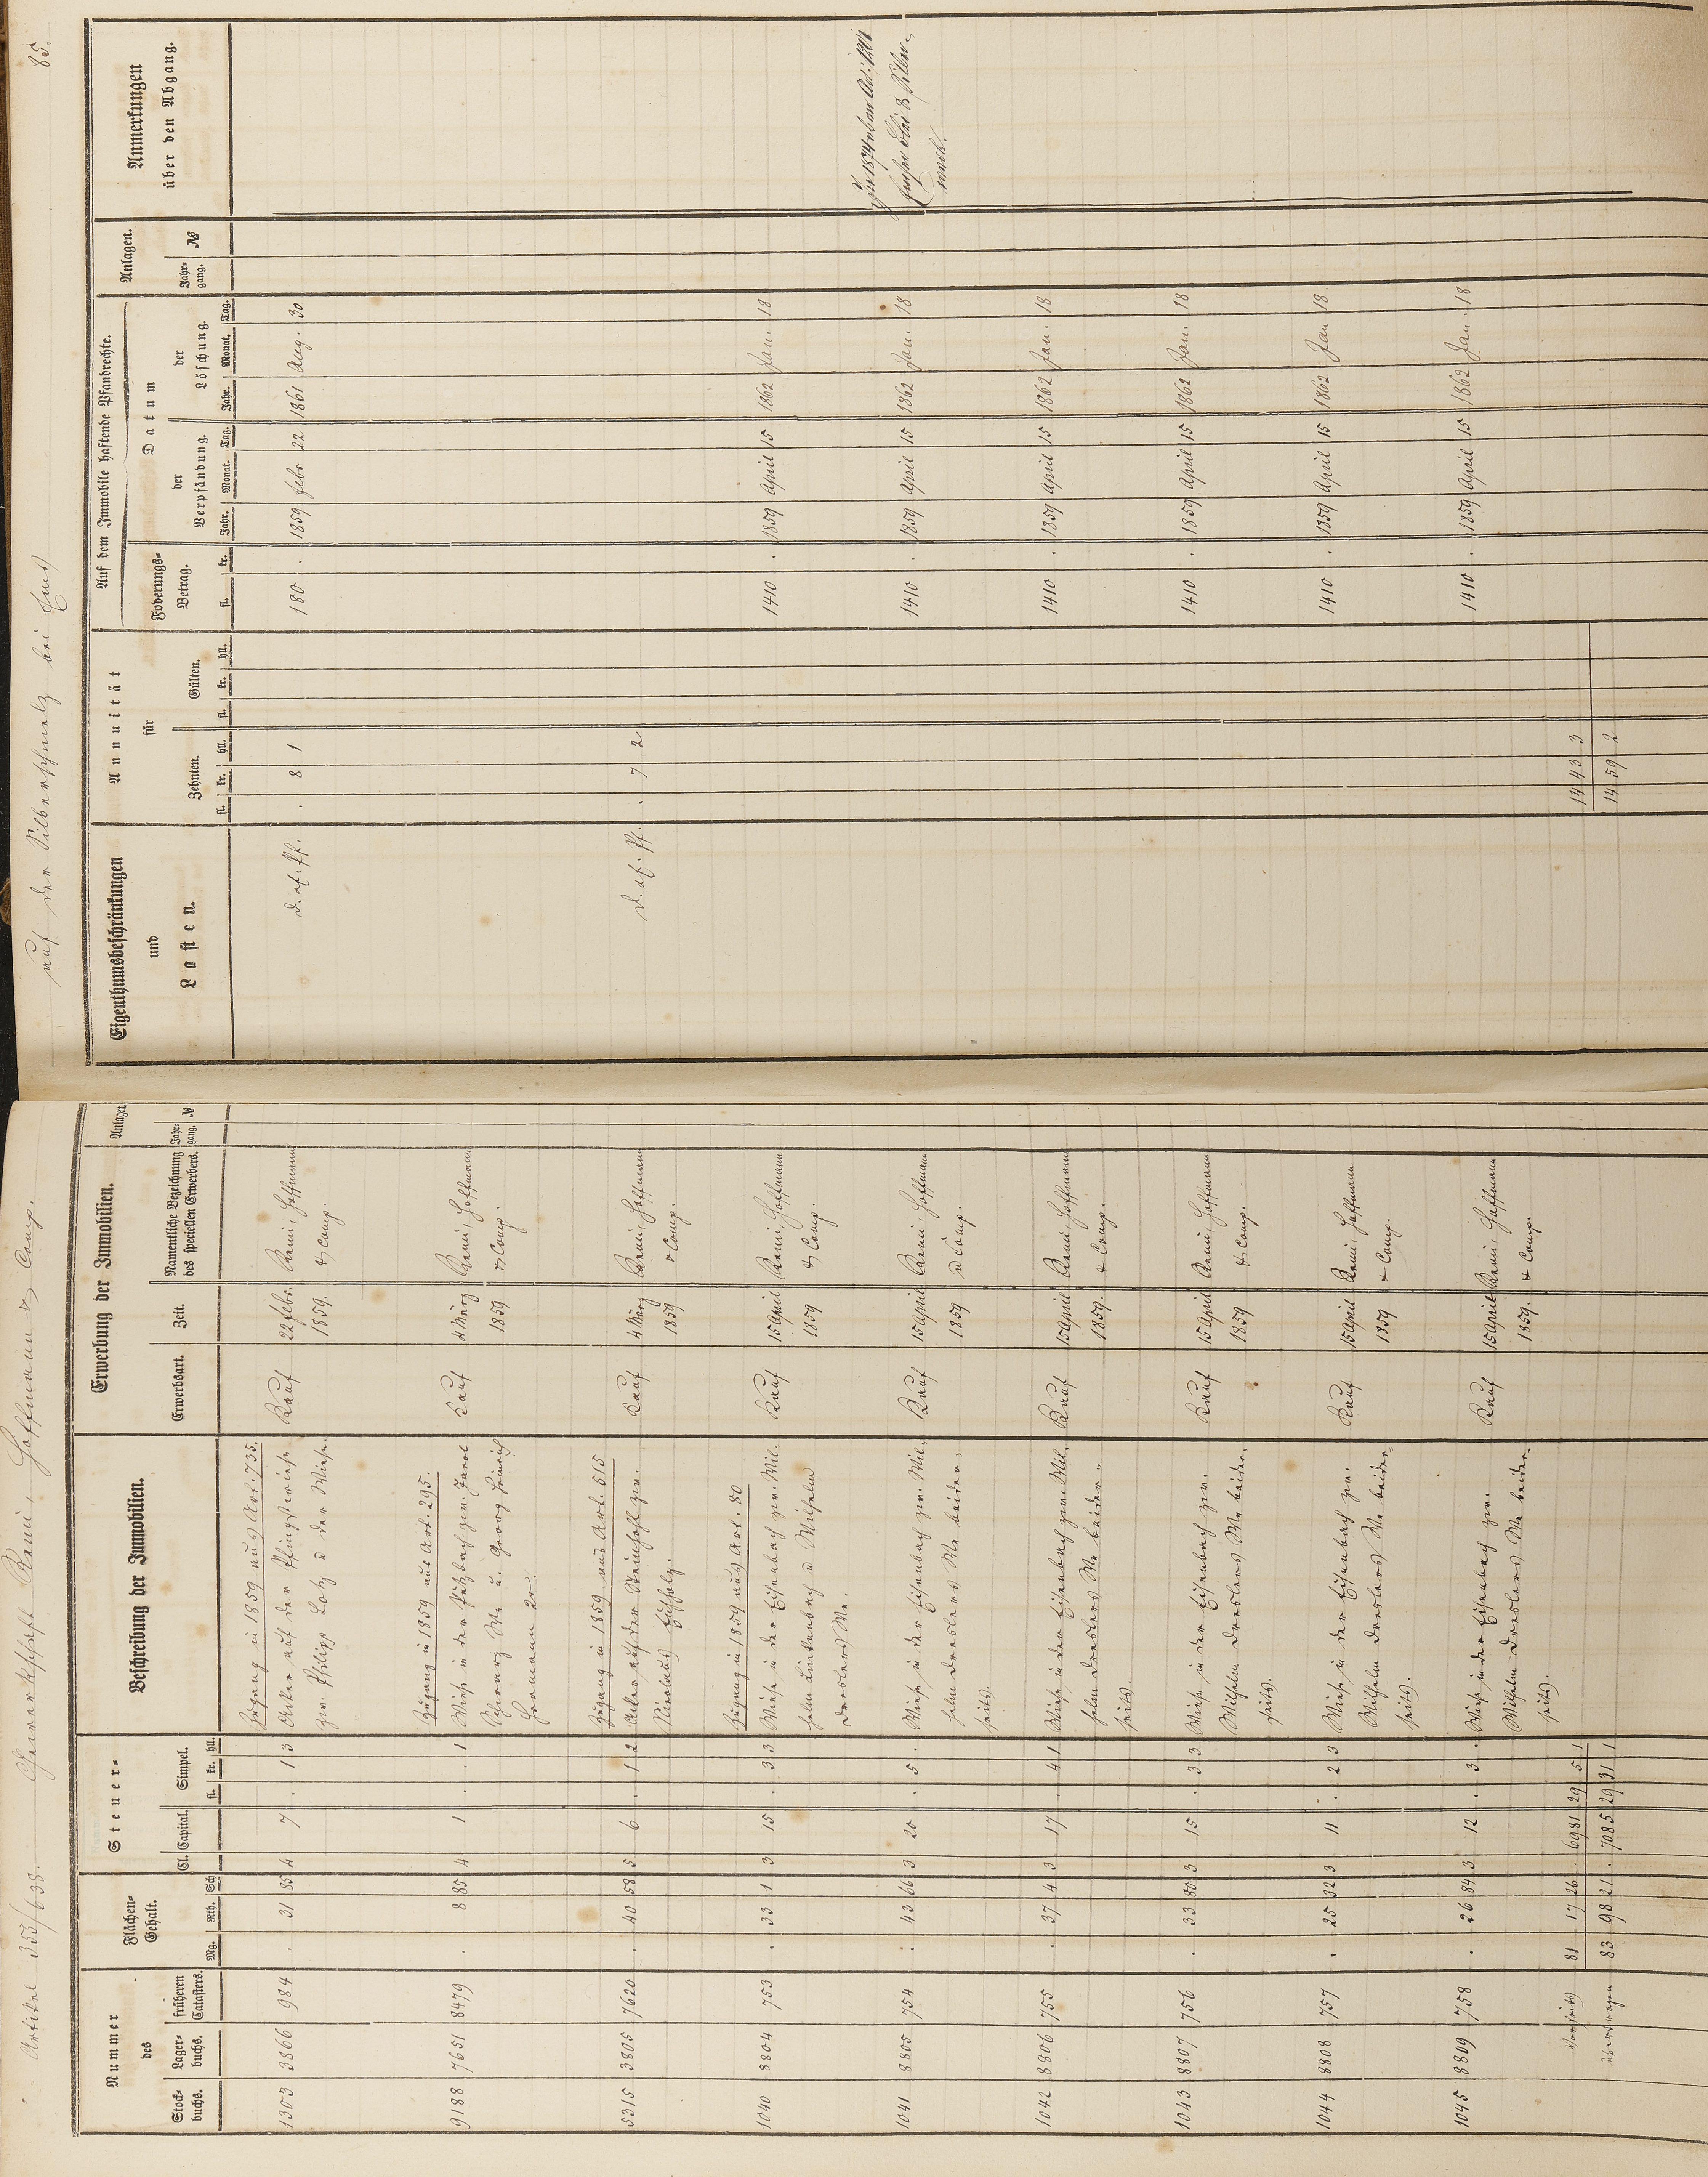 Artikel 355/638. Gewerkschaft Remi, Hoffmann & Comp.
Nummer
des
Stock-
buchs.
Lager-
buchs.
früheren
Catasters.
Flächen-
Gehalt.
Mg. Rth. Sch
Steuer-
Cl. Capital. Simpel.
fl. kr. hll.
Beschreibung der Immobilien.
Erwerbung der Immobilien.
Erwerbsart. Zeit.
Namentliche Bezeichnung
des speciellen Erwerbers.
Anlagen
Jahr-
gang. №
Zugang in 1859 aus Art. 735.
1303 3866 984 . 31 35 4 7 . 1 3 Acker auf der Pfingstwiese Kauf 22 febr. Remi, Hoffmann
zw. Philipp Lotz u der Wiese. 1859. & Comp.
Zugang in 1859 aus Art. 295.
9188 7651 8479 . 8 85 4 1 . . 1 Wiese in der Pützbach zw. Jacob Kauf 4 März Remi, Hoffmann
Schwarz We u. Georg Heinrich 1859 & Comp.
Hermann 2r.
Zugang in 1859 aus Art. 515
5315 3805 7620 . 40 58 5 6 . 1 2 Acker auf der Steinhohl zw. Kauf 4 März Remi, Hoffmann
Nicolaus 1859 & Comp.
Zugang in 1859 aus Art. 80
1040 8804 753 . 33 1 3 15 . 3 3 Wiese in der Eisenbach zw. Wil- Kauf 15 April Remi, Hoffmann
helm Linkenbach u Wilhelm 1859 & Comp.
Dreslers We.
1041 8805 754 . 43 66 3 20 . 5 . Wiese in der Eisenbach zw. Wil- Kauf 15 April Remi, Hoffmann
helm Dreslers We beider- 1859 & Comp.
seits.
1042 8806 755 . 37 4 3 17 . 4 1 Wiese in der Eisenbach zw. Wil- Kauf 15 April Remi, Hoffmann
helm Dreslers We beider- 1859. & Comp.
seits.
1043 8807 756 . 33 80 3 15 . 3 3 Wiese in der Eisenbach zw. Kauf 15 April Remi, Hoffmann
Wilhelm Dreslers We beider- 1859 & Comp.
seits.
1044 8808 757 . 25 32 3 11 . 2 3 Wiese in der Eisenbach zw. Kauf 15 April Remi, Hoffmann
Wilhelm Dreslers We beider- 1859 & Comp.
seits.
1045 8809 758 . 26 84 3 12 . 3 . Wiese in der Eisenbach zw. Kauf 15 April Remi, Hoffmann
Wilhelm Dreslers We beider- 1859. & Comp.
seits.
Vorseits 81 17 26 . 6981 29 5 1
übertragen 83 98 21 . 7085 29 31 1
auf der Silberschmelz bei Ems 85.
Eigenthumsbeschränkungen
und
Lasten.
Annuität
für
Zehnten. Gülten.
fl. kr. hll. fl. kr. hll.
Auf dem Immobile haftende Pfandrechte.
Foderungs-
Betrag.
fl. kr.
Datum
der
Verpfändung.
Jahr. Monat. Tag.
der
Löschung.
Jahr. Monat. Tag.
Anlagen.
Jahr-
gang. №
Anmerkungen
über den Abgang.
. 8 1 180 . 1859 febr 22 1861 Aug. 30
. 7 2
1410 . 1859 April 15 1862 Jan. 18
1410 . 1859 April 15 1862 Jan. 18
1410 . 1859 April 15 1862 Jan. 18
1410 . 1859 April 15 1862 Jan. 18
1410 . 1859 April 15 1862 Jan 18
1410 . 1859 April 15 1862 Jan. 18
14 43 3
14 59 2